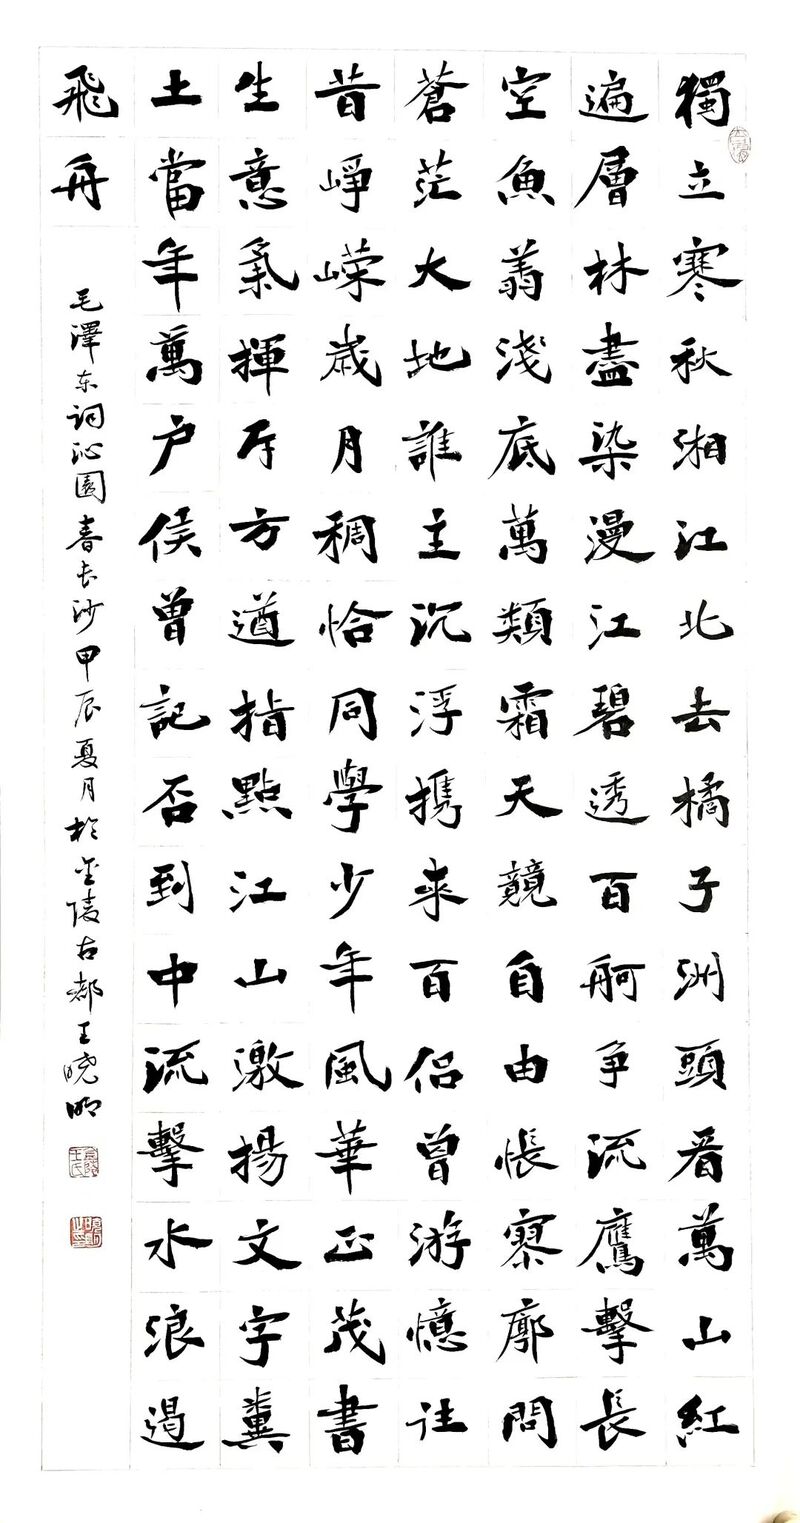 獨立寒秋湘江北去橘子洲頭看萬山紅
遍層林盡染漫江碧透百舸争流鷹擊長
空魚翕淺底萬類霜天競自由悵寥廓問
蒼茫大地誰主沉浮携來百侣曾游憶往
昔崢嶸歲月稠恰同學少年風華正茂書
生意氣揮斥方遒指點江山激揚文字糞
土當年萬户侯曾記否到中流擊水浪遏
飛舟
毛澤东词沁園春长沙甲辰夏月於金陵古都王晓明